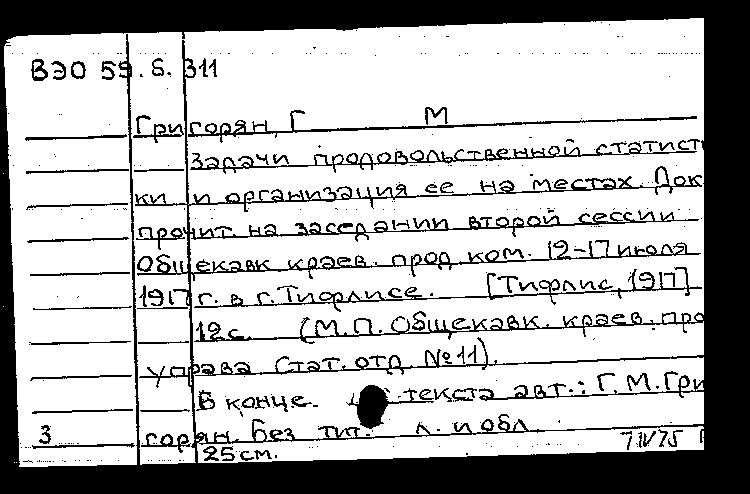 ВЭО 59.S.311
Григорян, Г М
Задачи продовольственной статисти
ки и организация ее на местах. Док
прочит на заседании второй сессии
Общекавк краев. прод. ком. 12-17 июля
1917 г. в г. Тифлисе. [Тифлис, 1917]
12 с. (М.П. Общекавк. краев. про
управа Стат. отд. №11).
В конце текста авт.: Г.М. Гри
3 горян. Без тит. л. и обл.
25 см.